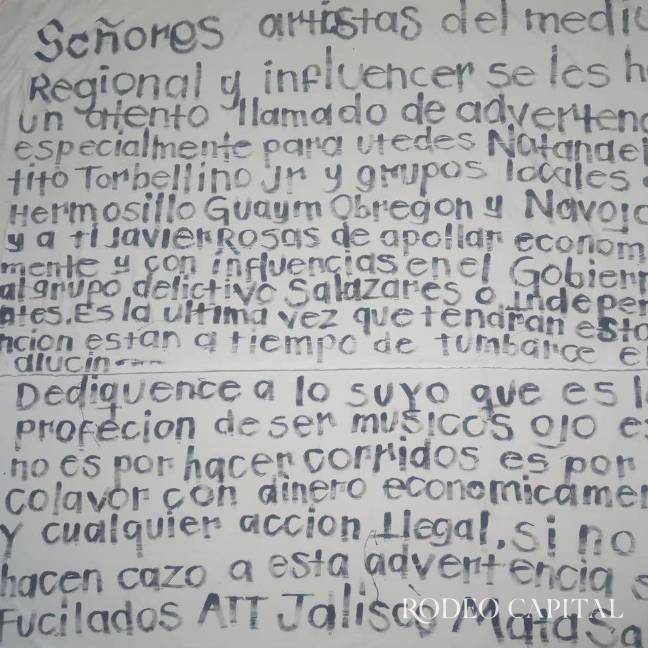 Señores artistas del medi
Regional y influencer se les h
un atento llamado de adverten
especialmente para utedes Natande
tito Torbellino Jr y grupos locales
Hermosillo Guaym Obregon y Navojo
y a ti Javier Rosas de apollar econom
mente y con influencias en el Gobier
al grupo delictivo Salazares o Indepe
ntes. Es la ultima vez que tendran esta
ncion estan a tiempo de tumbarce e
alucin---
Dediquence a lo suyo que es l
profecion de ser musicos ojo e
no es por hacer corridos es por
colavor con dinero economicame
y cualquier accion Ilegal, si no
hacen cazo a esta advertencia s
Fucilados ATT Jalisco MataSa
RODEO CAPITAL